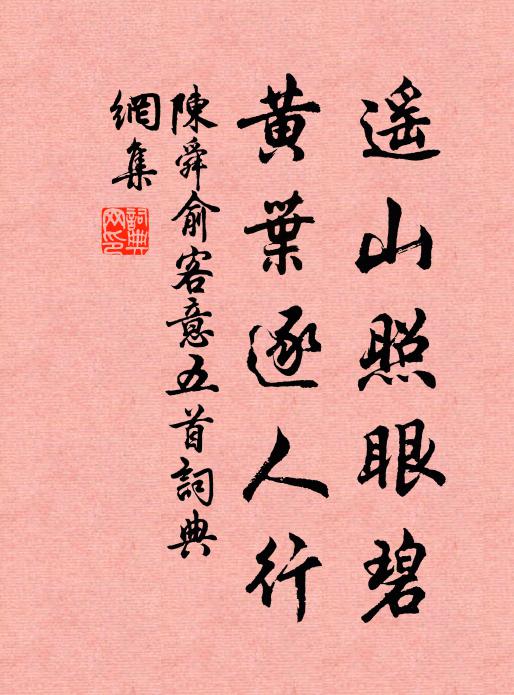 遥山照眼碧
黃葉逐人行
陳舜俞客意五首詞典
網集
詞典網印